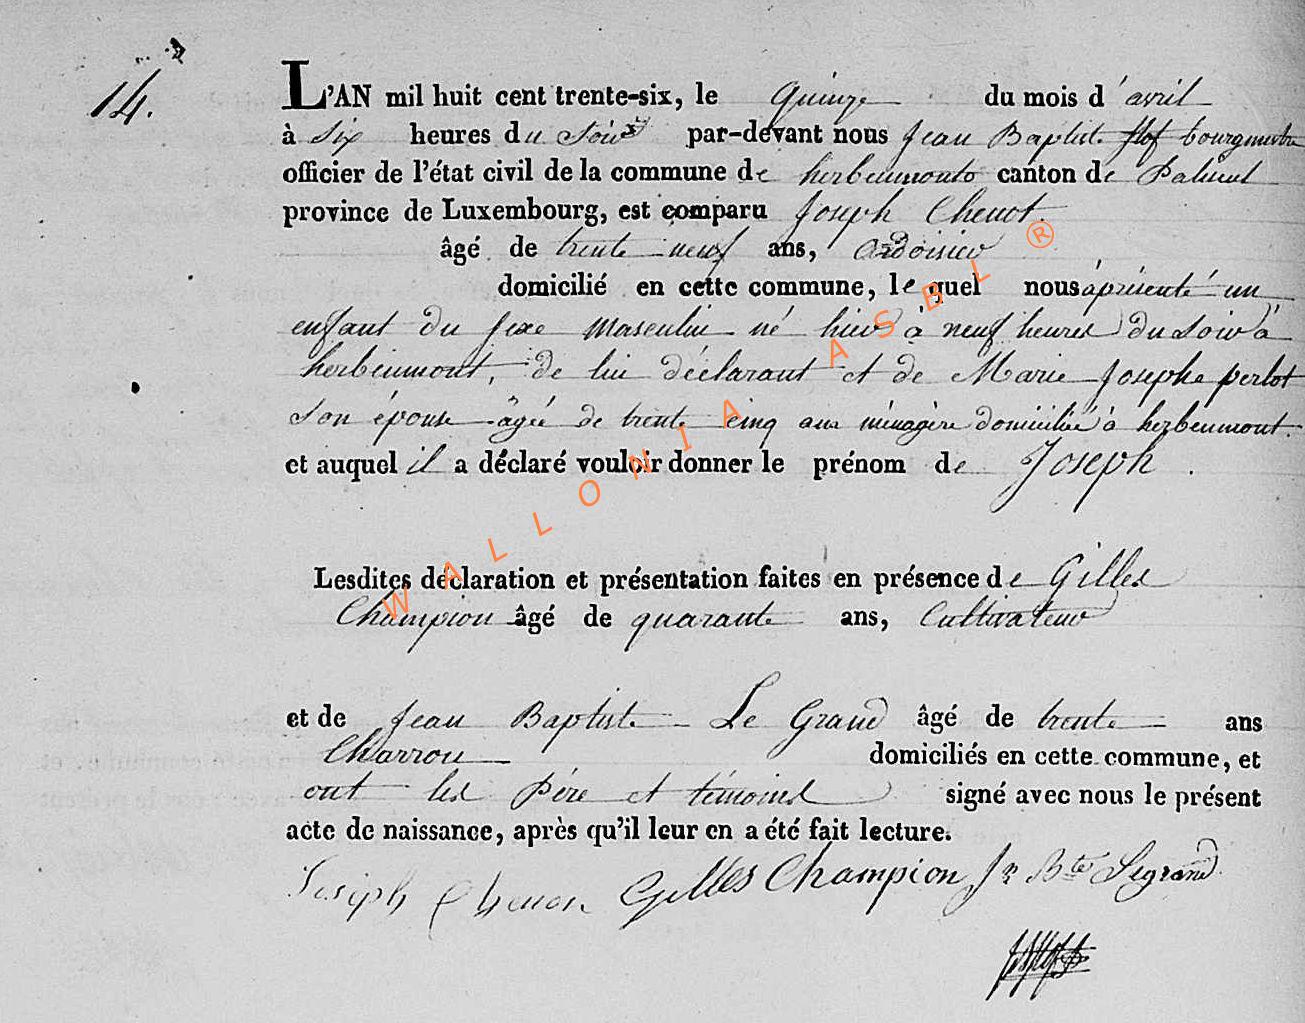 14.
L'AN mil huit cent trente-six, le quinze du mois d'avril
à six heures du soir par-devant nous jean Baptist. bourgmestre
officier de l'état civil de la commune de herbeumonts canton de Paliseul
province de Luxembourg, est comparu Joseph Chenot.
âgé de trente neuf ans, ardoisier
domicilié en cette commune, lequel nous a présenté un
enfant du sexe masculin né hier à neuf heures du soir à
herbeumont, de lui déclarant et de Marie josephe perlot
son épouse âgée de trente cinq ans ménagère domiciliée à herbeumont.
et auquel il a déclaré vouloir donner le prénom de Joseph.
Lesdites déclaration et présentation faites en présence de Gilles
Champion âgé de quarante ans, Cultivateur
et de jean Baptiste Le Grand âgé de trente ans
Charron domiciliés en cette commune, et
ont les Père et témoins signé avec nous le présent
acte de naissance, après qu'il leur en a été fait lecture.
Joseph Chenot Gilles Champion Jn Bte Legrand
WALLONIA ASBL ®